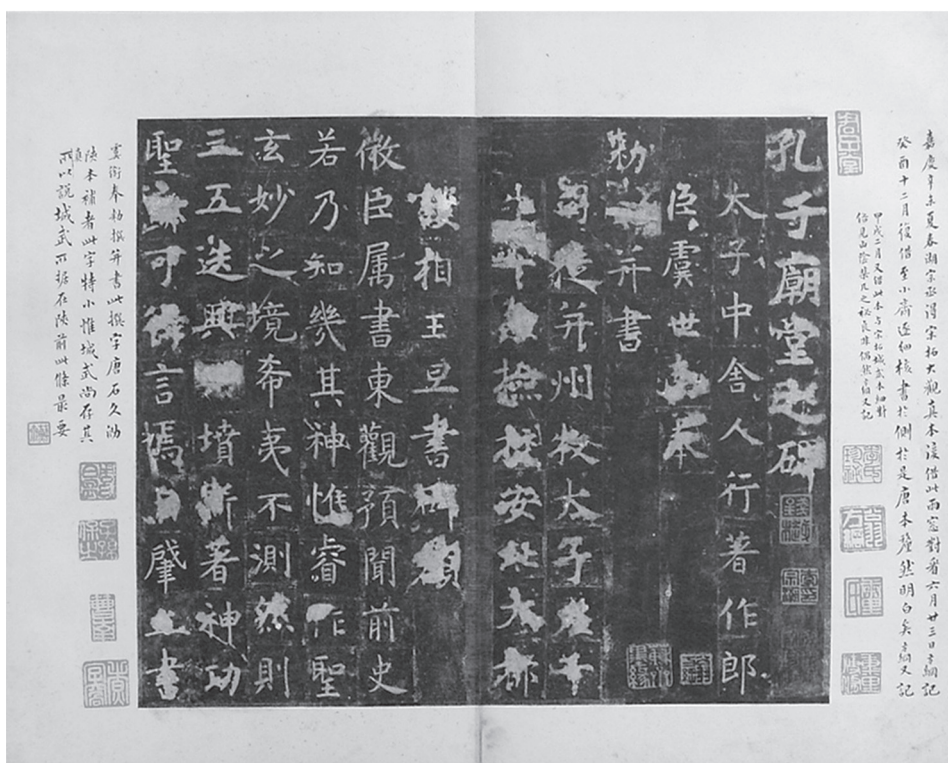 嘉慶辛未夏春湖宗丞得宋拓大觀真本復借此雨窓對看六月廿三日方綱記
癸酉十二月復借至小齋逐細核書於側於是唐本釐然明白矣方綱又記
甲戌二月又借此本与宋拓城武本細對
倍見山陰棐几之秘良非偶然方綱又記
孔子廟堂之碑
太子中舍人行著作郎
臣虞世南奉
勑撰并書
司徒并州牧太子左千
牛率兼檢校安北大都
護相王旦書碑額
微臣属書東觀預聞前史
若乃知幾其神惟睿作聖
玄妙之境希夷不測然則
三五迭興典墳斯著神功
聖迹可得言焉自肇立書
虞銜奉勑撰并書此撰字唐石久泐
陝本補者此字特小惟城武尚存其
真
所以說城武所據在陝前此條最要